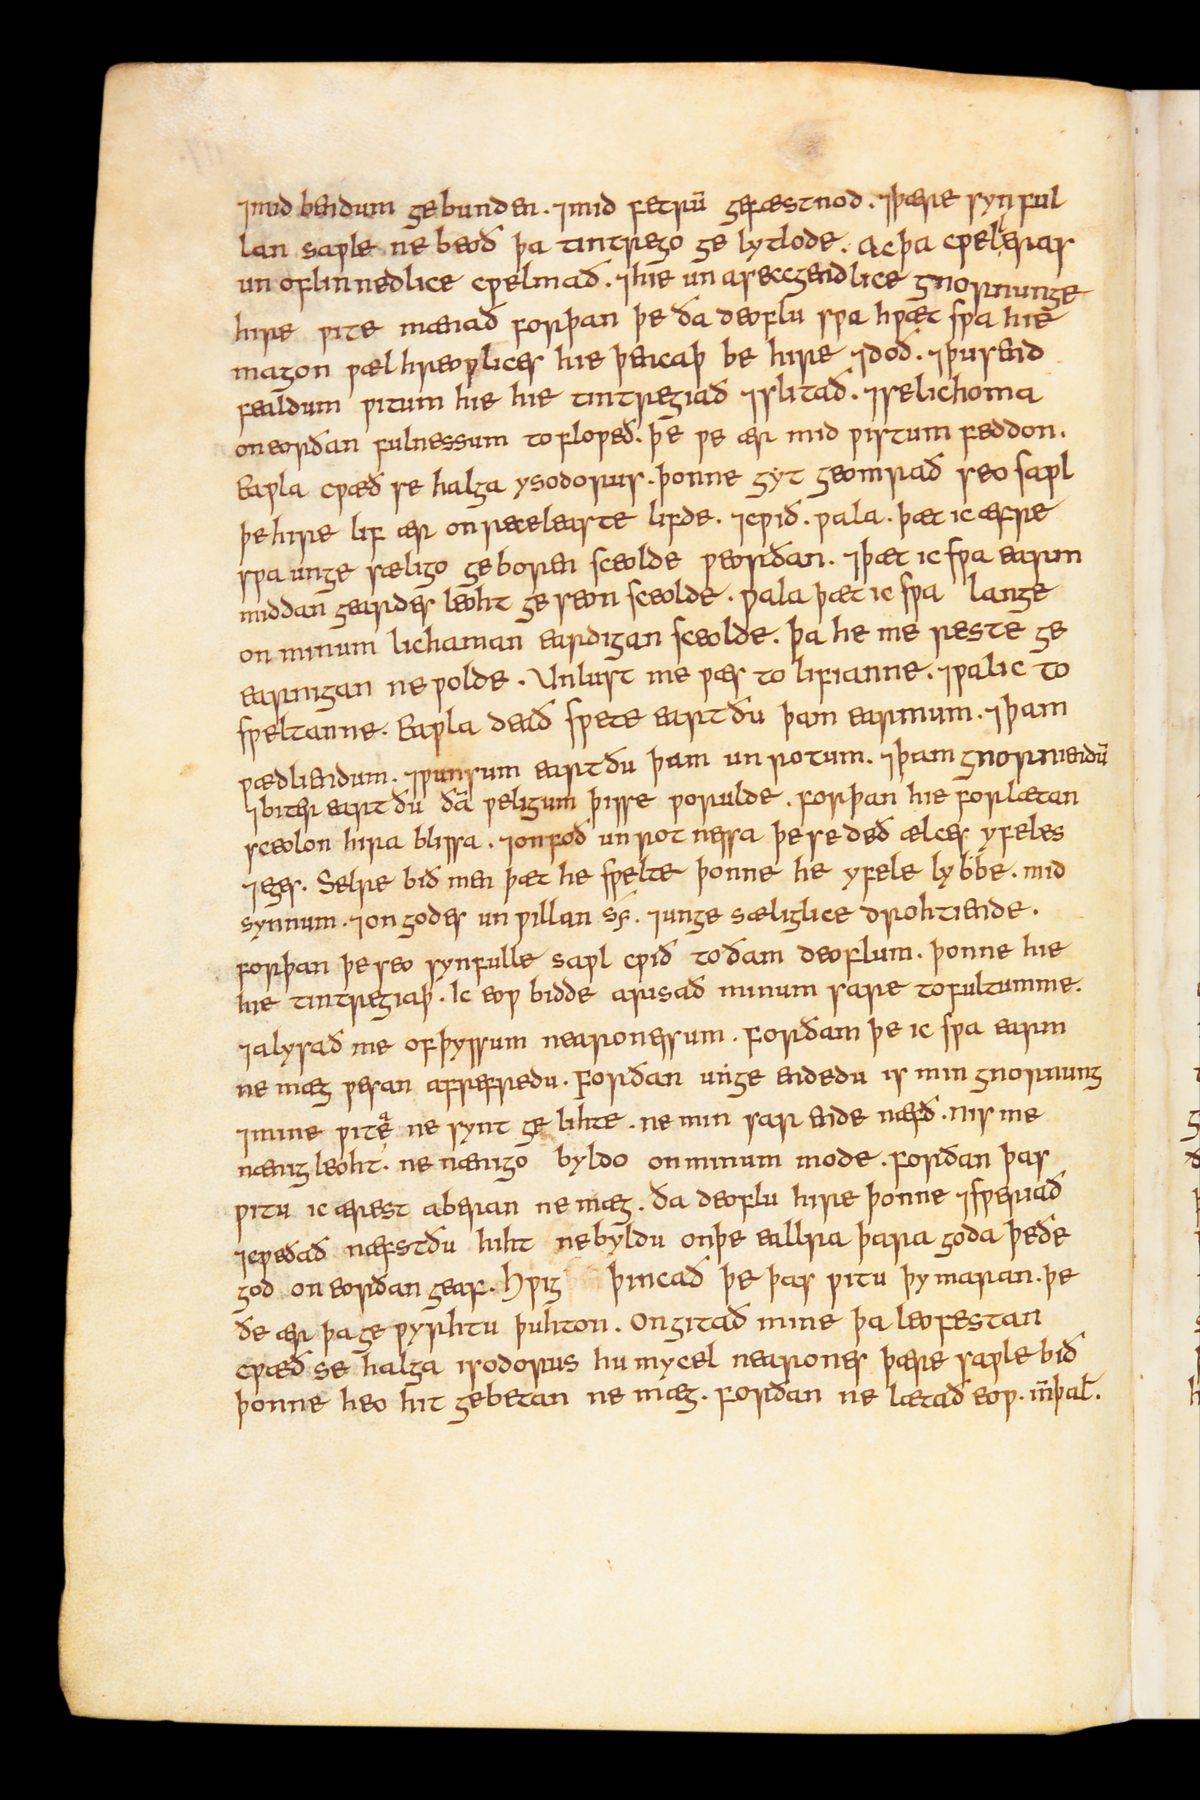 ⁊mid bendum gebunden. ⁊mid fetrū gefæstnod. ⁊þære synful
lan saple ne beoð þa tintrego ge lytlode. Ac þa cƿelleras
un oflinnedlice cƿelmað. ⁊hie un aræcgendlice gnornunge
hire ƿite mænað forþan þe ða deoflu sƿa hƿæt sƿa hie
magon ƿælhreoƿlices hie þencaþ be hire ⁊doð. ⁊þusend
fealdum ƿitum hie hie tintregiað ⁊slitað. ⁊se lichoma
on eorðan fulnessum to floƿeð. þe ƿe ær mid ƿistum feddon.
Eaƿla cƿæð se halga ysodorus. þonne gyt geomrað seo saƿl
þe hire lif ær on receleaste lifde. ⁊cƿið. ƿala. þæt ic æfre
sƿa unge sæligo geboren sceolde ƿeorðan. ⁊þæt ic sƿa earm
middan geardes leoht ge seon sceolde. ƿala þæt ic sƿa lange
on minum lichaman eardigan sceolde. þa he me reste ge
earnigan ne ƿolde. Unlust me ƿæs to lifianne. ⁊ƿa lic to
sƿeltanne. Eaƿla deað sƿete eart ðu þam earmum. ⁊þam
ƿædliendum. ⁊ƿunsum eart ðu þam un rotum. ⁊þam gnorniendū
⁊biter eart ðu ðā ƿeligum þisse ƿorulde. forþan hie forlætan
sceolon hira blissa. ⁊onfoð un rot nessa þe se deð ælces yfeles
⁊eges. Selre bið men þæt he sƿelte þonne he yfele lybbe. mid
synnum. ⁊on godes un ƿillan sy. ⁊unge sæliglice drohtiende.
forþan þe seo synfulle saƿl cƿið to ðam deoflum. þonne hie
hie tintregiaþ. Ic eoƿ bidde arisað minum sare to fultumme.
⁊alysað me of þyssum nearonessum. forðam þe ic sƿa earm
ne mæg ƿesan afrefredu. forðan unge endedu is min gnornung
⁊mine ƿitę ne synt ge lihte. ne min sar ende næfð. Nis me
nænig leoht. ne nænigo byldo on minum mode. forðan þas
ƿitu ic ærest aberan ne mæg. ða deoflu hire þonne ⁊sƿeriað
⁊cƿeðað næfst ðu hiht ne byldu on þe eallra þara goda þe ðe
god on eorðan geaf. Hƿig þincað þe þas ƿitu þy maran. þe
ðe ær þa ge ƿyrhtu þuhton. Ongitað mine þa leofestan
cƿæð se halga isodorus hu mycel nearones þære saƿle bið
þonne heo hit gebetan ne mæg. forðan ne lætað eoƿ. m̄ þa l̄.